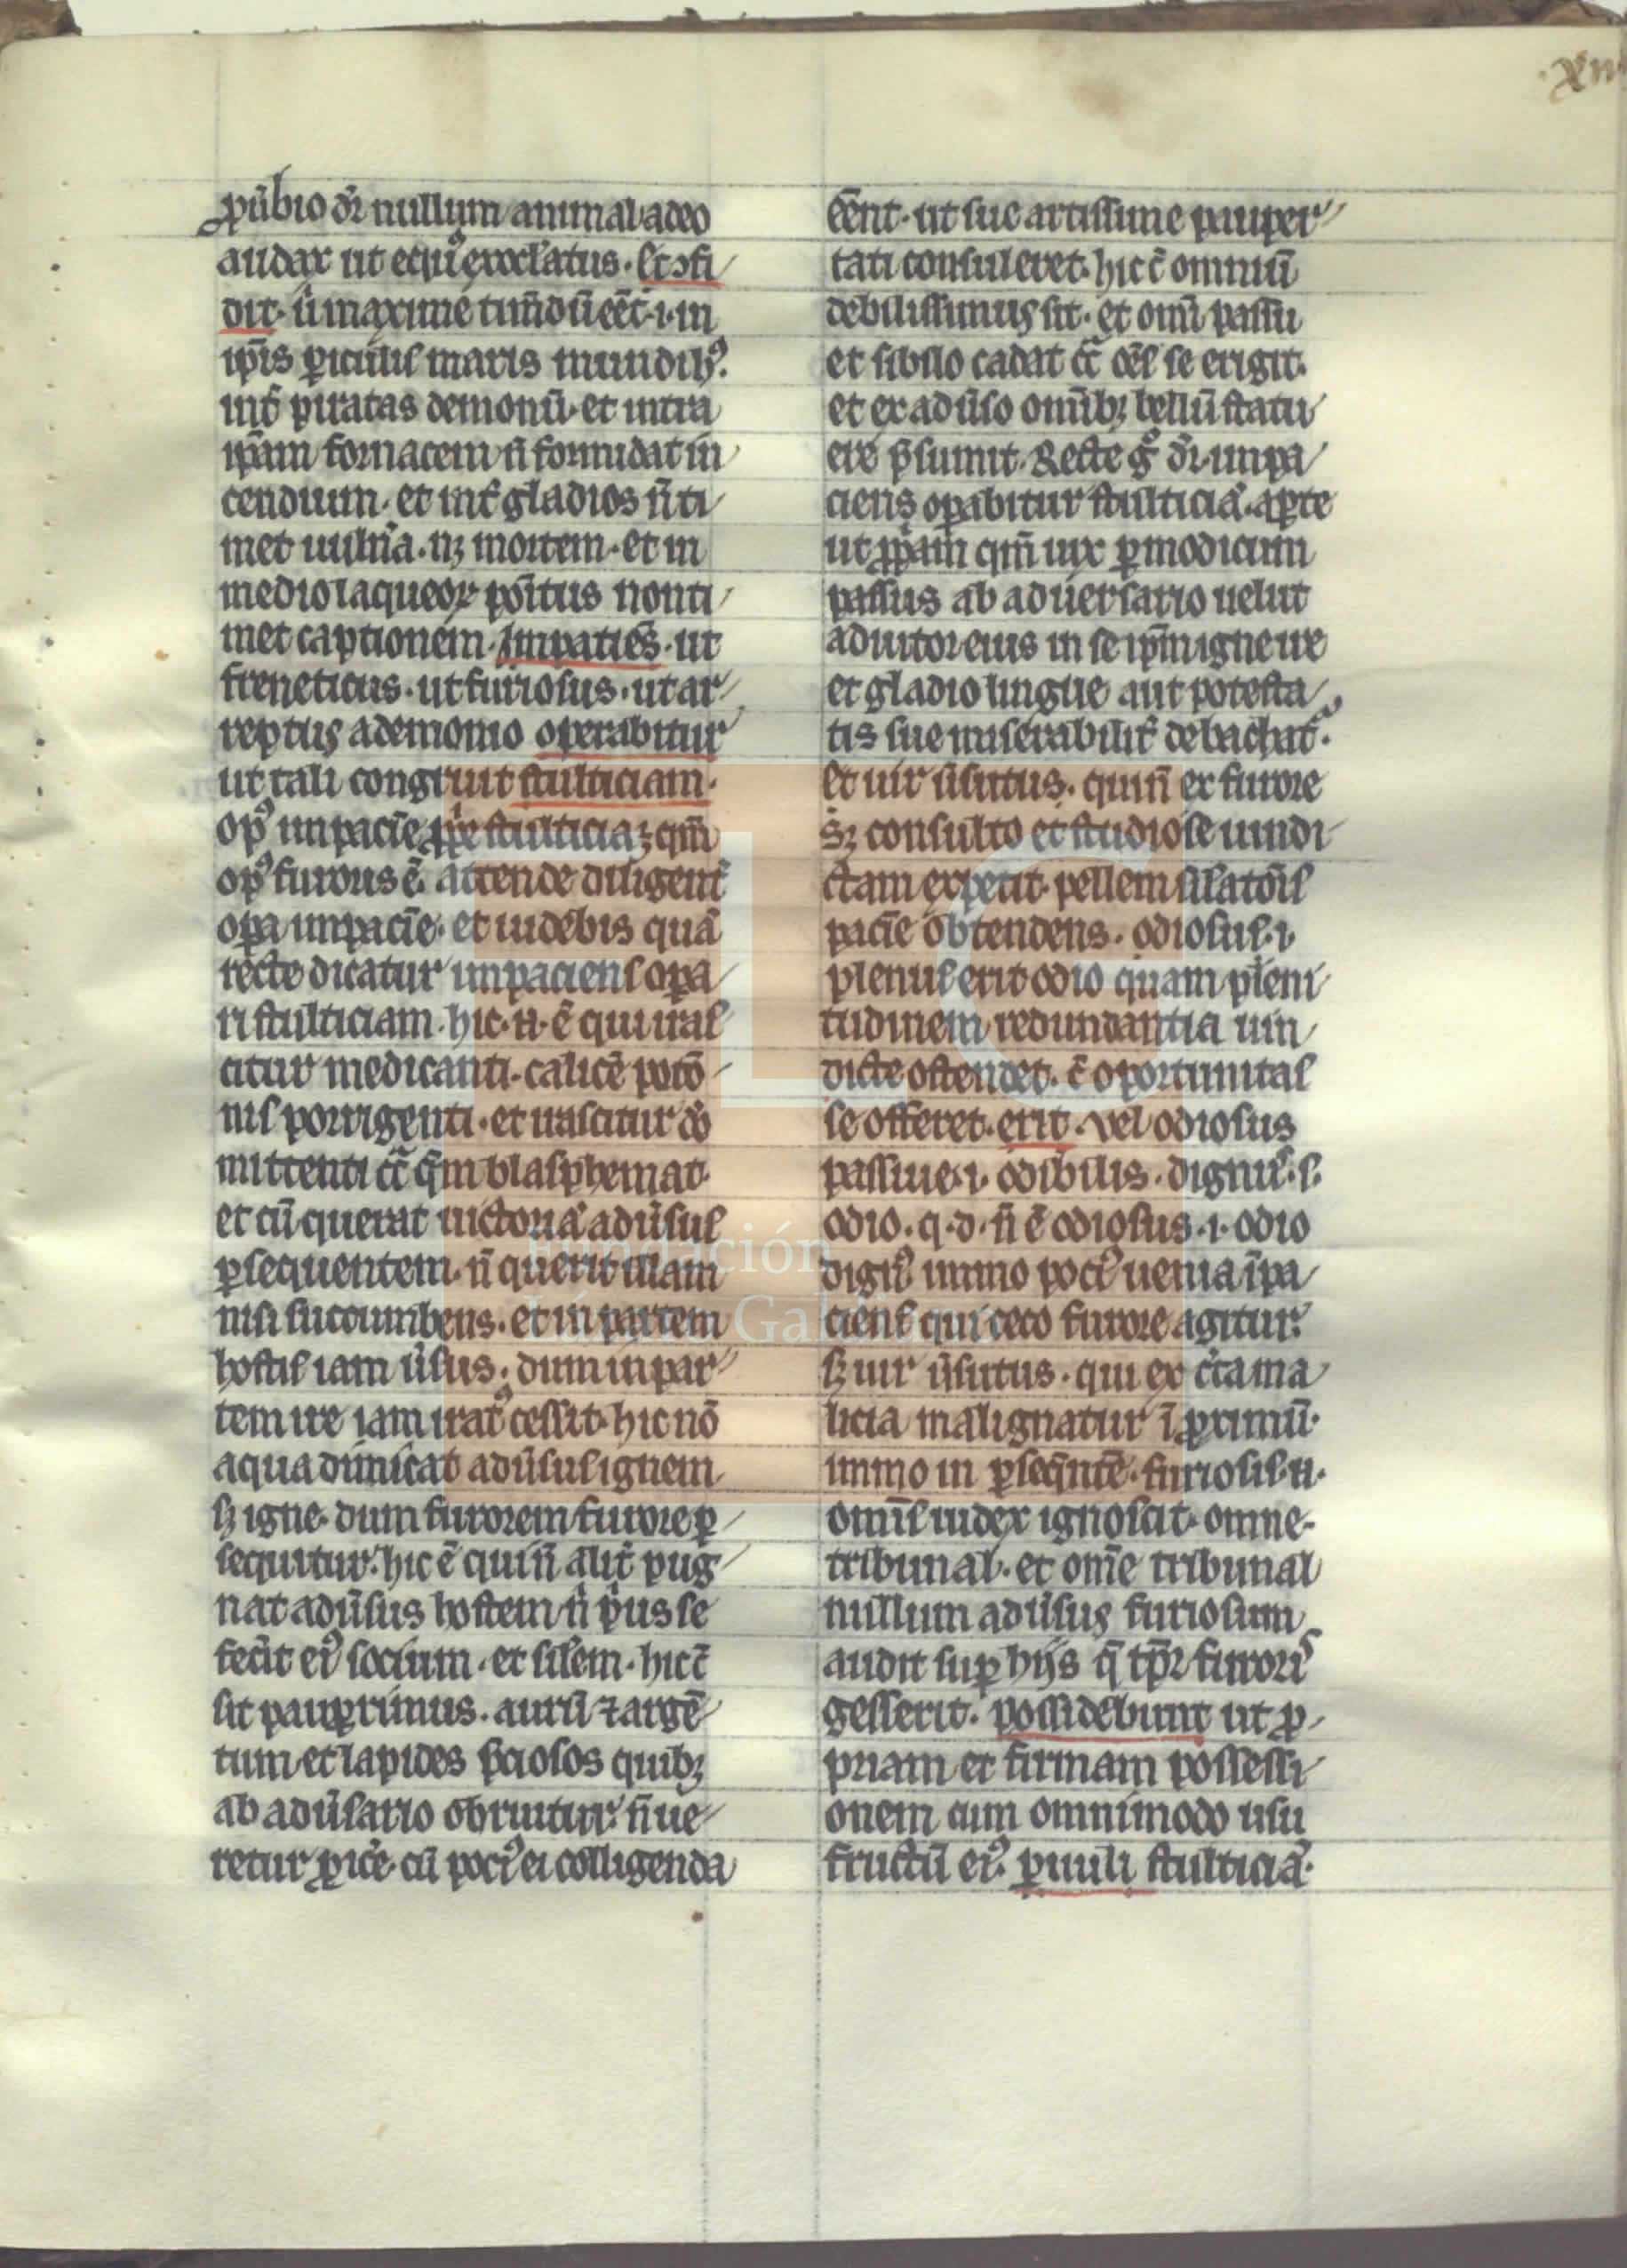 .xiii
ꝓũbio dr̃ nullum animal adeo
audax ut equꝰ exoc̃latus. Et ↄfi
dit. ũ maxime tim̃dũ eẽt .i. in
ip̃is ꝑiculis maris mundi hꝰ.
int̃ piratas demonũ. et intra
ip̃am fornacem ñ formidat in
cendium. et int̃ gladios ñ ti
met uuln̾a. nꝫ mortem. et in
medio laqueoꝝ põitus non ti
met captionem. Impatiẽs. ut
freneticus. ut furiosus. ut ar
reptus a demonio operabitur
ut tali congruit stulticiam.
opꝰ impacĩe ꝓp̾e stulticia ꝫ qm̃
opꝰ furoris ẽ. attende diligent̃
oꝑa impacĩe. et uidebis quã
recte dicatur impaciens oꝑa
ri stulticiam. hic .n. ẽ qui iras
citur medicanti. calicẽ potõ
nis porrigenti. et irascitur dõ
mittenti cc̃ q̃m blasphemat.
et cũ querat uictoriã adũsus
ꝑsequentem. ñ querit illam
nisi succumbens. et in partem
hostis iam ũsus. dum in par
tem ire iam iratꝰ cessit. hic nõ
aqua dimicat adũsus ignem
sꝫ igne. dum furorem furore ꝑ
sequitur. hic ẽ qui ñ alit̃ pug
nat adũsus hostem ñ p̾us se
fec̃it eiꝰ socium. et silem. hic c̃
sit pauꝑrimus. aurũ ⁊ argẽ
tum et lapides p̃ciosos quibꝫ
ab adũsario obruitur. ñ ue
retur ꝓic̾e. cũ pociꝰ ei colligenda
eẽnt. ut sue artissime pauper
tati consuleret. hic c̃ omniũ
debilissimus sit. et om̃i passu
et sibilo cadat cc̃ oẽs se erigit.
et ex adũso om̃ibꝫ bellũ statu
ere p̃sumit. Recte gͦ dr̃. impa
ciens oꝑabitur stulticiã. aꝑte
ut ꝓp̾iam qm̃ uix ꝑmodicum
passus ab aduersario uelut
adiutor eius in se ip̃m igne ire
et gladio lingue aut potesta
tis sue miserabilit̃ debachat᷑.
Et uir ũsutus. qui ñ ex furore
sꝫ consulto et studiose uindi
ctam expetit. pellem silatõis
pacĩe obtendens. odiosus .i.
plenus erit odio quam pleni
tudinem redundantia uin
dicte ostendet. c̃ oportunitas
se offeret. erit. Vel odiosus
passiue .i. odibilis. dignus .s.
odio. q.d. ñ ẽ odiosus .i. odio
dignꝰ. immo pociꝰ uenia ĩpa
ciens qui ceco furore agitur.
sꝫ uir ũsutus. qui ex c̾ta ma
licia malignatur ĩ ꝓximũ.
immo in ꝑseq̃ntẽ. furiosis .n.
om̃is iudex ignoscit. omne
tribunal. et om̃e tribunal
nullum adũsus furiosum
audit suꝑ hijs q̃ tp̃r furoris
gesserit. possidebunt ut ꝓ
priam et firmam possessi
onem cum omnimodo usu
fructũ eiꝰ. ꝑuuli stulticiã.